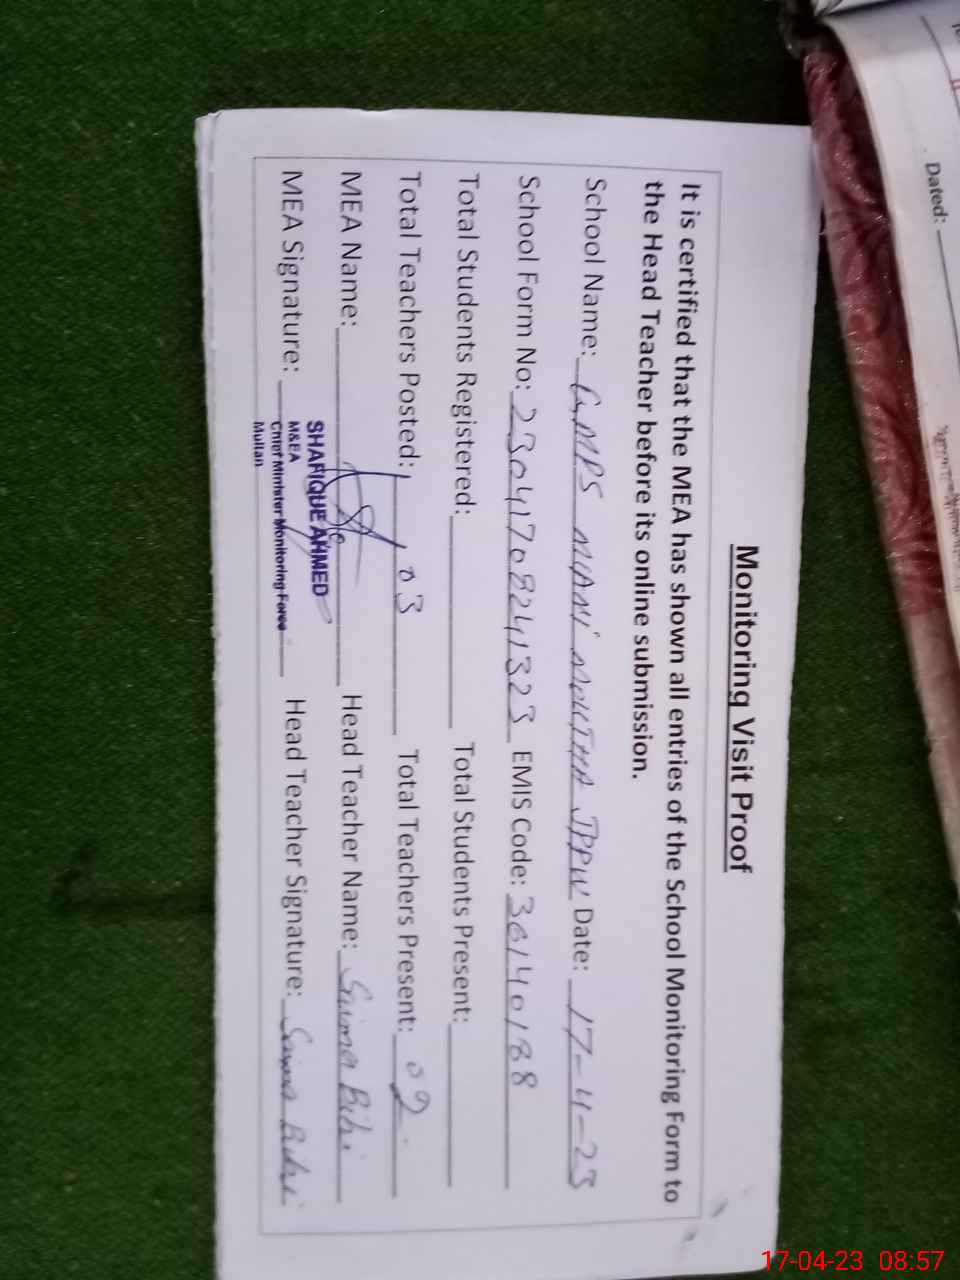 Monitoring Visit Proof
It is certified that the MEA has shown all entries of the School Monitoring Form to
the Head Teacher before its online submission.
School Name: GMPS MIANI MOUTHA JPPW Date: 17-4-23
School Form No: 23041708241323 EMIS Code: 36140188
Total Students Registered: Total Students Present:
Total Teachers Posted: 03 Total Teachers Present: 02
MEA Name: Head Teacher Name: Saima Bibi
SHAFIQUE AHMED
M&EA
MEA Signature: Head Teacher Signature: Saima Bibi
Chief Minister Monitoring Force
Multan
Dated:
17-04-23 08:57